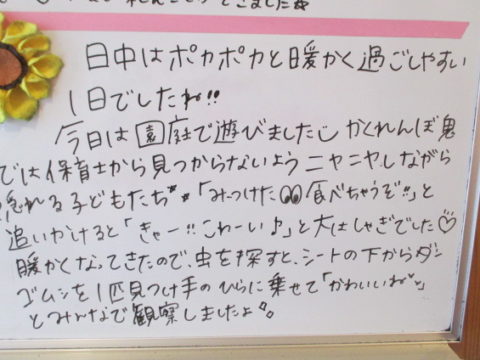 日中はポカポカと暖かく過ごしやすい
1日でしたね!!
今日は園庭で遊びましたし かくれんぼ鬼
では保育士から見つからないようニヤニヤしながら
隠れる子どもたち 「みつけた 食べちゃうぞ!!」と
追いかけると「きゃー!!こわーい♪」と大はしゃぎでした♡
暖かくなってきたので、虫を探すと、シートの下からダン
ゴムシを1匹見つけ手のひらに乗せて「かわいいね」と
とみんなで観察しましたよ。